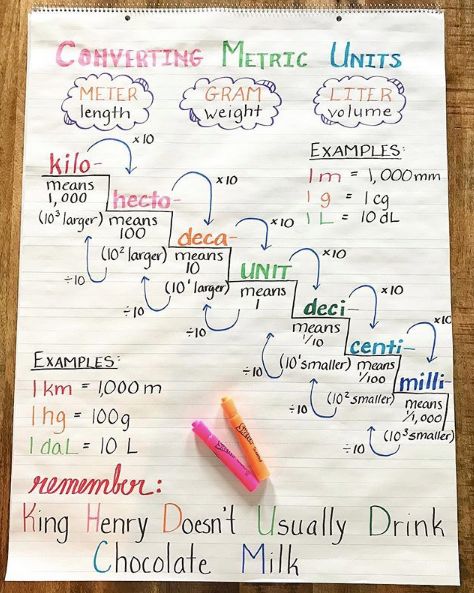 CONVERTING METRIC UNITS
METER
length
GRAM
weight
LITER
volume
EXAMPLES:
1 m = 1,000 mm
1 g = 1 cg
1 L = 10 dL
kilo-
means
1,000
(10³ larger)
x10
÷10
hecto-
means
100
(10² larger)
x10
÷10
deca-
means
10
(10¹ larger)
x10
÷10
UNIT
means
1
x10
÷10
deci-
means
1/10
(10¹ smaller)
x10
÷10
centi-
means
1/100
(10² smaller)
x10
÷10
milli-
means
1/1,000
(10³ smaller)
EXAMPLES:
1 km = 1,000 m
1 hg = 100g
1 daL = 10 L
remember:
King Henry Doesn't Usually Drink
Chocolate Milk